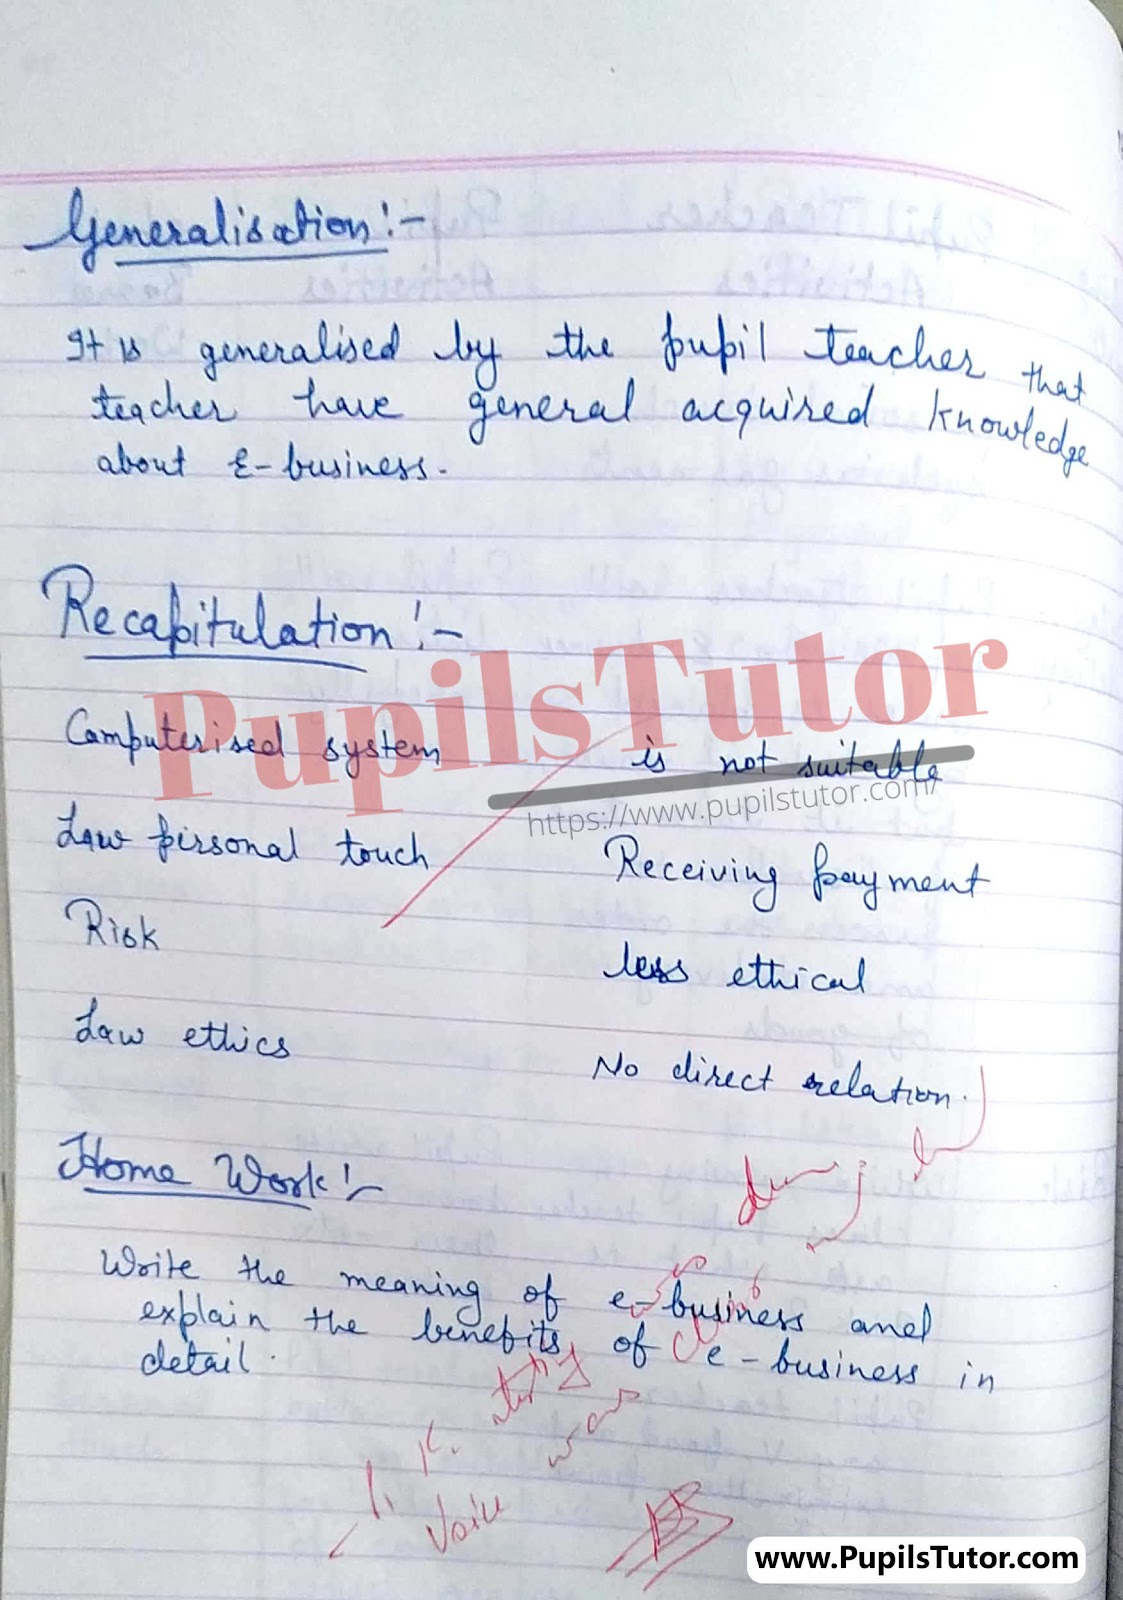 Generalisation:-
It is generalised by the pupil teacher that
teacher have general acquired knowledge
about E-business.
Recapitulation:-
PupilsTutor
https://www.pupilstutor.com/
Computerised system is not suitable
Law personal touch Receiving payment
Risk less ethical
Law ethics No direct relation.
Home Work:-
Write the meaning of e-business and
explain the benefits of e-business in
detail.
Voice
www.PupilsTutor.com